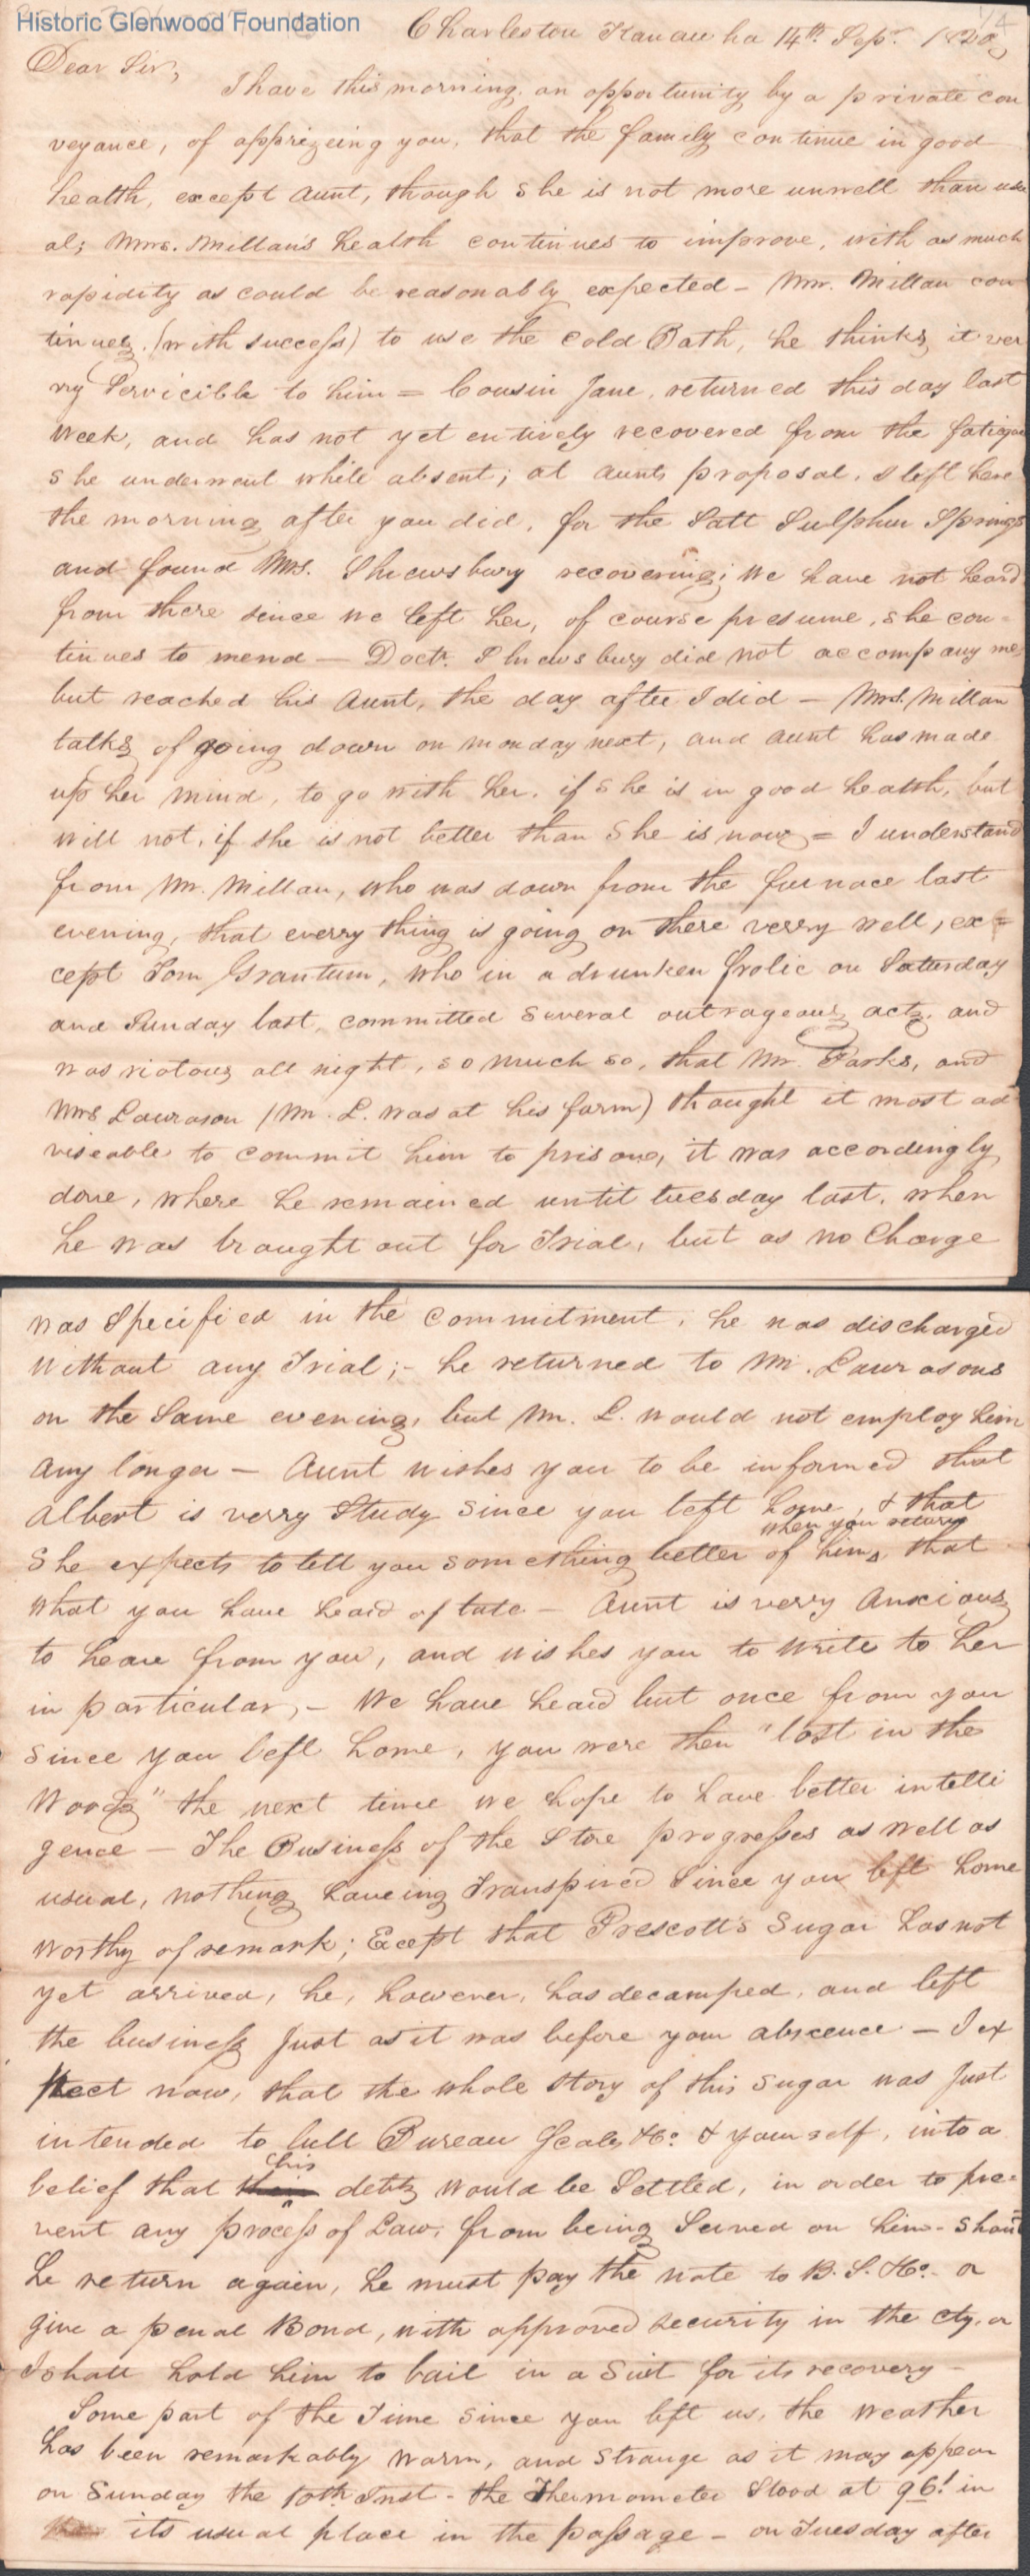 Historic Glenwood Foundation
Charleston Kanawha 14th. Sep. 1820
Dear Sir,
I have this morning, an opportunity by a private con
veyance, of apprizeing you, that the family continue in good
health, except aunt, though she is not more unwell than usu
al; Mrs. Millan's health continues to improve, with as much
rapidity as could be reasonably expected - Mr. Millan con
tinues, (with success) to use the Cold Bath, he thinks it ver
ry Servicible to him = Cousin Jane, returned this day last
week, and has not yet entirely recovered from the fatigue
she underwent while absent; at aunts proposal, I left here
the morning after you did, for the Salt Sulphur Springs
and found Mrs. Shrewsbury recovering; we have not heard
from there since we left her, of course presume, she con=
tinues to mend — Doctr. Shrewsbury did not accompany me,
but reached his Aunt, the day after I did — Mrs. Millan
talks of going down on monday next, and aunt has made
up her mind, to go with her, if she is in good health, but
will not, if she is not better than she is now = I understand
from Mr. Millan, who was down from the furnace last
evening, that everry thing is going on there verry well, ex=
cept Tom Grantum, who in a drunken frolic on Saturday
and Sunday last, committed several outrageous acts, and
was riotous all night, so much so, that Mr. Parks, and
Mrs Laurason (Mr. L. was at his farm) thought it most ad
viseable to commit him to prisone, it was accordingly
done, where he remained until tuesday last, when
he was braught out for Trial, but as no Charge
was Specified in the Commitment, he was discharged
without any Trial;- he returned to Mr. Laurasons
on the Same evening, but Mr. L. would not employ him
any longer — Aunt wishes you to be informed that
Albert is verry Study since you left home, & that
when you return
She expects to tell you something better of him, that
what you have heard of late — Aunt is verry Anxious
to heare from you, and wishes you to write to her
in particular, - We have heard but once from you
since you left home, you were then "lost in the
Woods" the next time we hope to have better intelli
gence — The Business of the Store progresses as well as
usual, nothing haveing Transpired Since you left home
worthy of remark; Except that Prescott's Sugar has not
yet arrived, he, however, has decamped, and left
the business Just as it was before your abscence — I ex
pect now, that the whole story of this sugar was Just
intended to lull Bureau Scales & Co. & yourself, into a
his
belief that debts would be Settled, in order to pre=
vent any process of Law, from being Served on him - shou'd
he return again, he must pay the note to B. S. & Co. or
give a penal Bond, with approved security in the cty, or
I shall hold him to bail in a Suit for its recovery —
Some part of the Time since you left us, the weather
has been remarkably warm, and strange as it may appear
on Sunday the 10th Inst - the Thermometer Stood at 96! in
its usual place in the passage — on Tuesday after